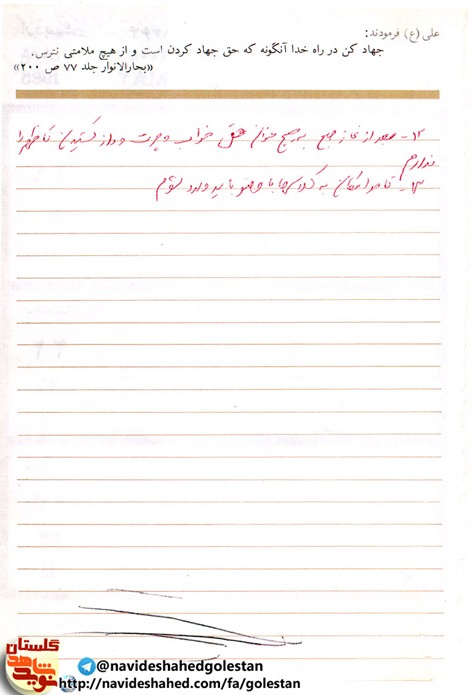 علی (ع) فرمودند:
جهاد کن در راه خدا آنگونه که حق جهاد کردن است و از هیچ ملامتی نترس.
«بحارالانوار جلد ۷۷ ص ۲۰۰»
۱۲- بعد از نماز صبح به هیچ عنوان حق خواب و چرت و دراز کشیدن تا ظهر را
ندارم
۱۳- تا حد امکان به کلاس‌ها با وضو باید وارد شوم
گلستان
نوید شاهد
@navideshahedgolestan
http://navideshahed.com/fa/golestan